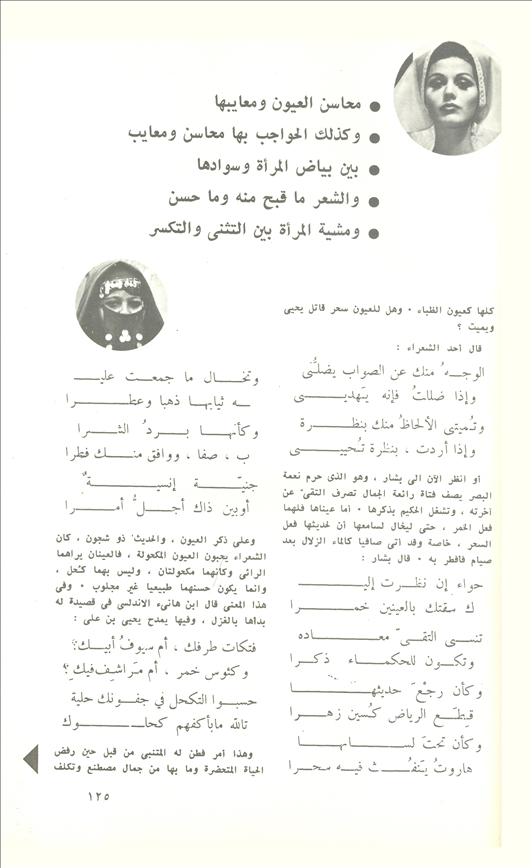 ● محاسن العيون ومعايبها
● وكذلك الحواجب بها محاسن ومعايب
● بين بياض المرأة وسوادها
● والشعر ما قبح منه وما حسن
● ومشية المرأة بين التثنى والتكسر
كلها كعيون الظباء ٠ وهل للعيون سحر قاتل يحيى
ويميت ؟
قال أحد الشعراء :
الوجهُ منك عن الصواب يضلّنى
وإذا ضللتُ فإنه يَهدينــى
وتُميتنى الألحاظُ منك بنظرة
وإذا أردت ، بنظرة تُحيينــى
أو انظر الآن الى بشار ، وهو الذى حرم نعمة
البصر يصف فتاة رائعة الجمال تصرف التقىّ عن
آخرته ، وتشغل الحكيم بذكرها ٠ أما عيناها فلهما
فعل الخمر ، حتى ليخال لسامعها أن لحديثها فعل
السحر ، خاصة وقد أتى صافيا كالماء الزلال بعد
صيام فافطر به ٠ قال بشار :
حوراء إن نظرت إليــ
ك سقتك بالعينين خمــرا
تنسى التقىّ معــاده
وتكون للحكماء ذكرا
وكأن رجْعَ حديثهــا
قِطَعُ الرياض كُسين زهرا
وكأن تحتَ لسانهــا
هاروتُ يَنفُث فيه سحرا
وتخال ما جمعت عليــ
ـه ثيابها ذهبا وعطــرا
وكأنها بردُ الشرا
ب ، صفا ، ووافق منك فطرا
جنيّة إنسيةٌ
أو بين ذاك أجلُّ أمرا
وعلى ذكر العيون ، والحديث ذو شجون ، كان
الشعراء يحبون العيون المكحولة ، فالعينان يراهما
الرائى وكأنهما مكحولتان ، وليس بهما كُحل ،
وانما يكون حسنهما طبيعيا غير مجلوب ٠ وفى
هذا المعنى قال ابن هانىء الاندلسى فى قصيدة له
بدأها بالغزل ، وفيها يمدح يحيى بن على :
فتكات طرفك ، أم سيوفُ أبيك؟
وكئوس خمر ، أم مَراشفُ فيك؟
حسبوا التكحل في جفونك حلية
تالله ما بأكفهم كحلوك
وهذا أمر فطن له المتنبى من قبل حين رفض
الحياة المتحضرة وما بها من جمال مصطنع وتكلف
١٢٥